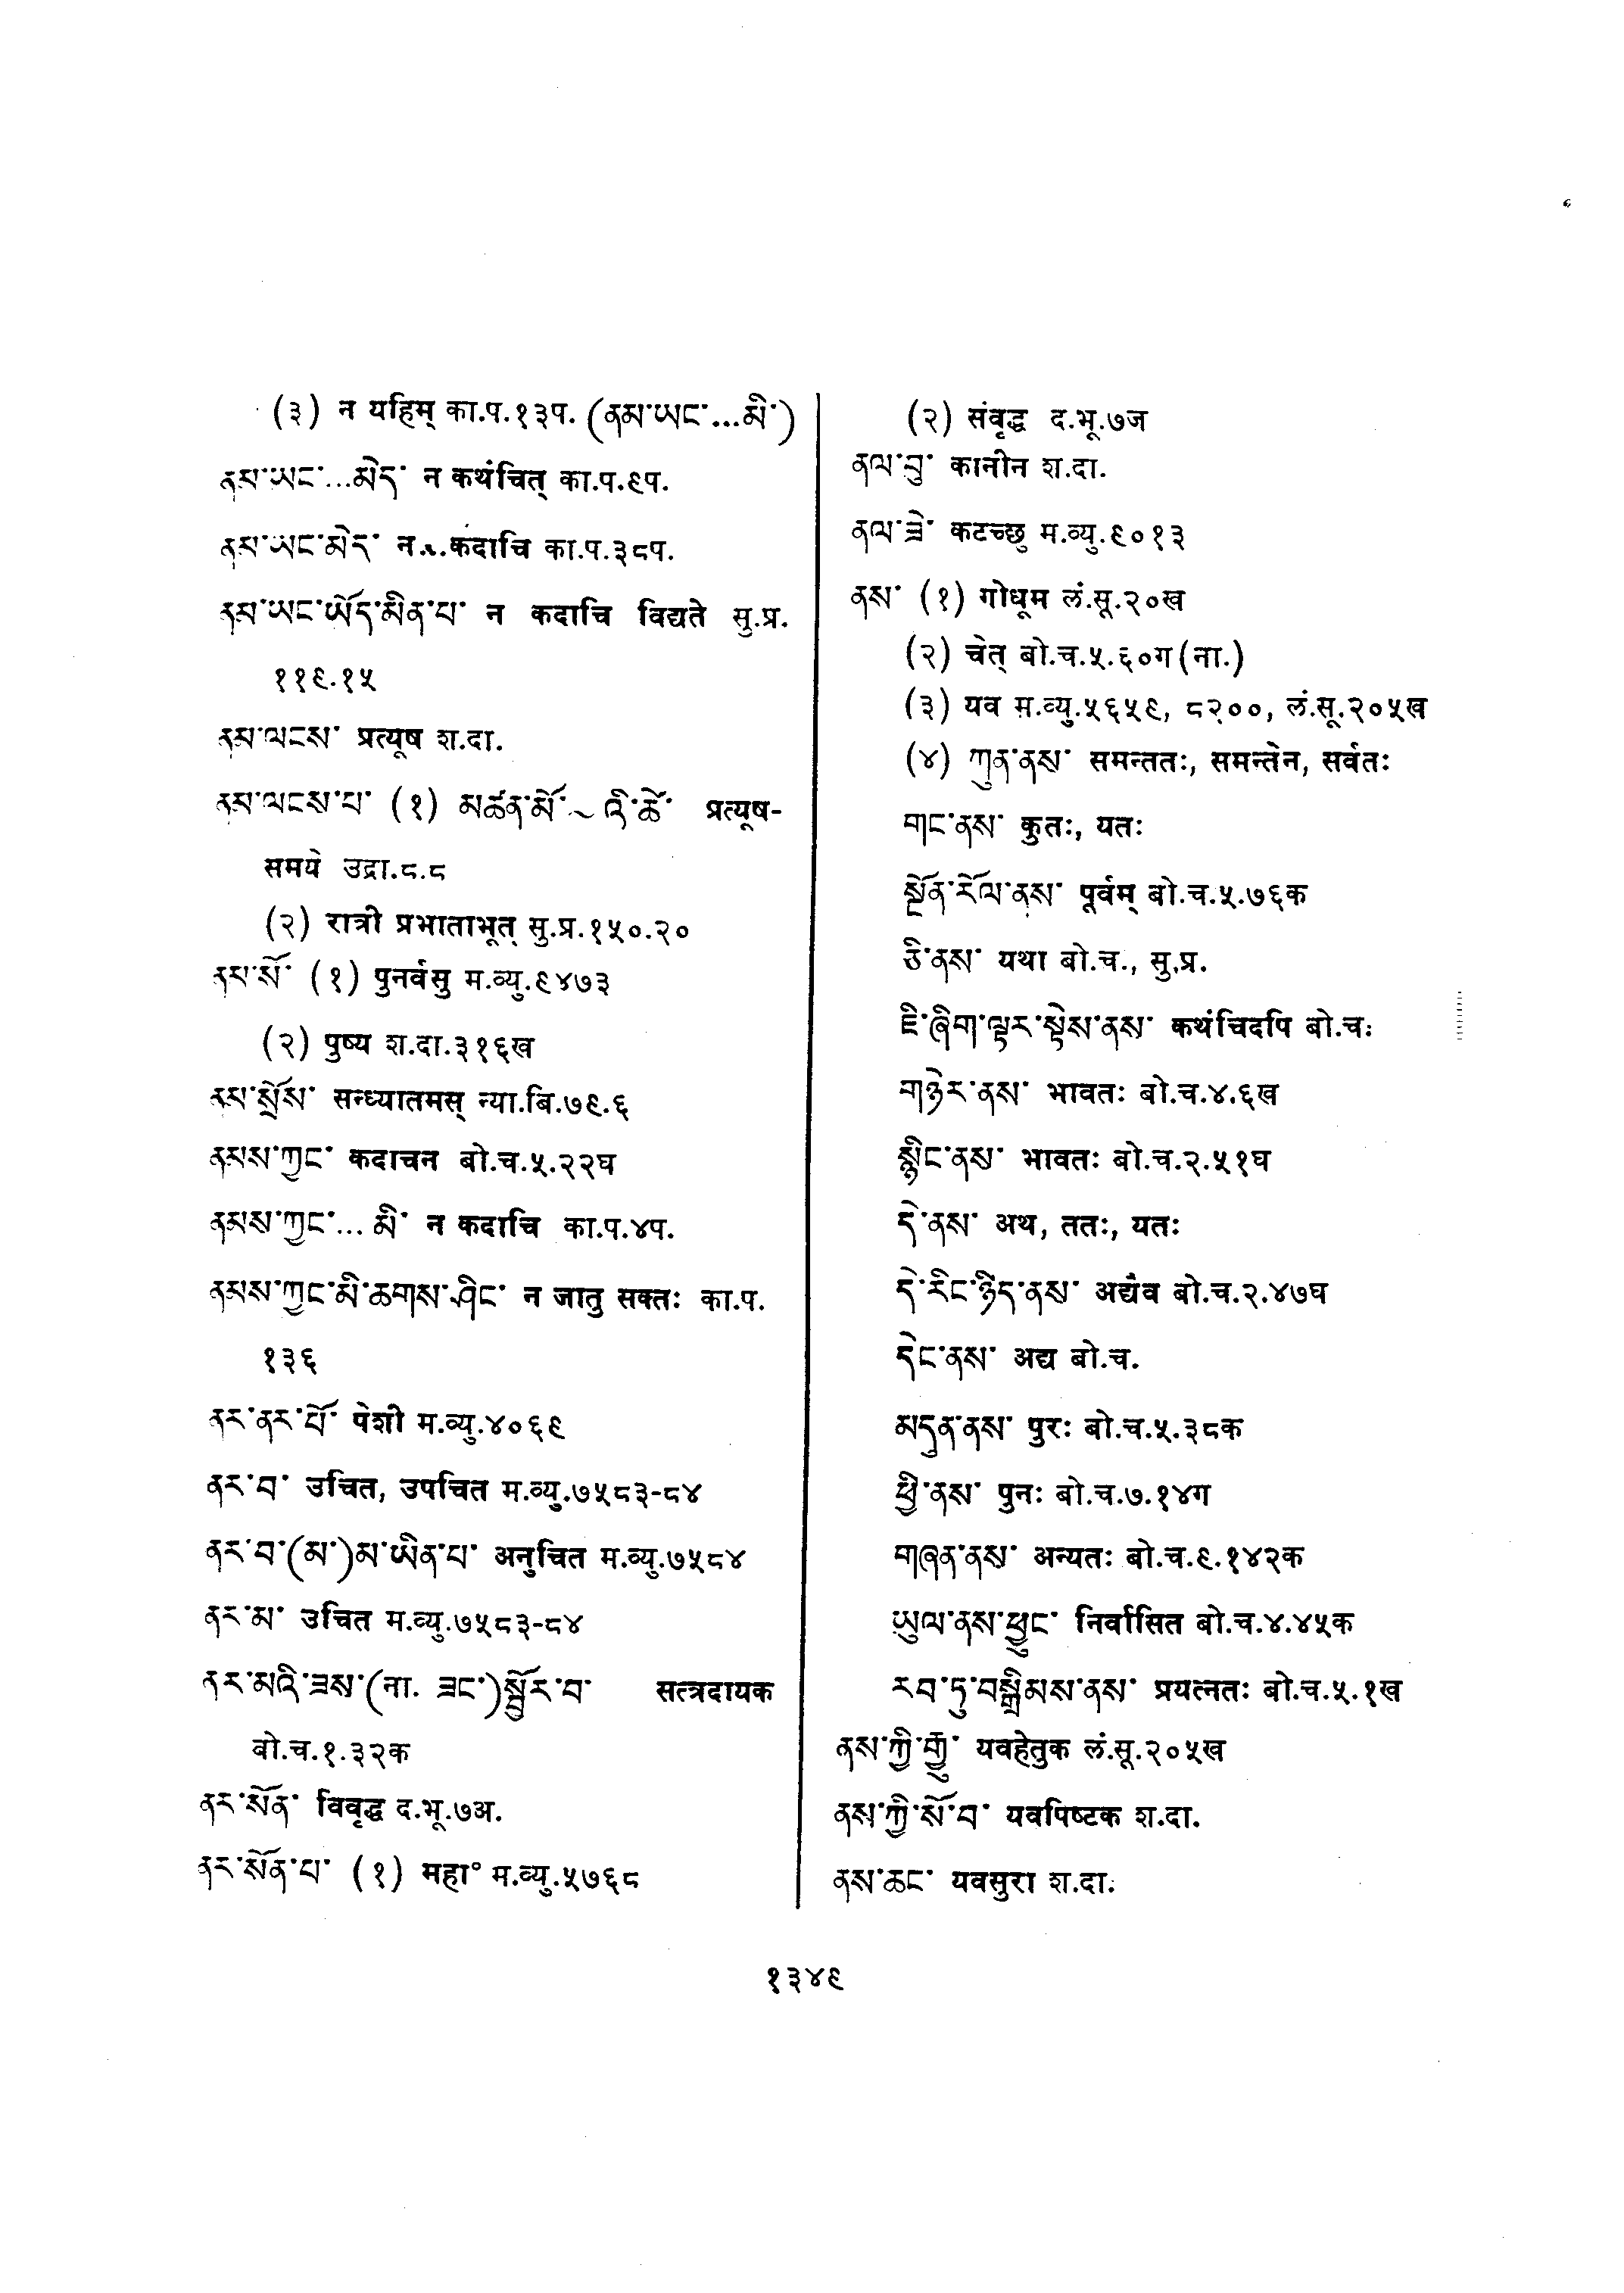 (३) न यहिम् का.प.१३प. (ནམ་ཡང་...མི་)
ནམ་ཡང་...མེད་ न कथंचित् का.प.९प.
ནམ་ཡང་མེད་ न...कदाचि का.प.३८प.
ནམ་ཡང་ཡོད་མིན་པ་ न कदाचि विद्यते सु.प्र.
११९.१५
ནམ་ལངས་ प्रत्यूष श.दा.
ནམ་ལངས་པ་ (१) མཚན་མོ་~འི་ཚེ་ प्रत्यूष-
समये उद्रा.८.८
(२) रात्री प्रभाताभूत् सु.प्र.१५०.२०
ནམ་སོ་ (१) पुनर्वसु म.व्यु.९४७३
(२) पुष्य श.दा.३१६ख
ནམ་སྲོས་ सन्ध्यातमस् न्या.बि.७९.६
ནམས་ཀྱང་ कदाचन बो.च.५.२२घ
ནམས་ཀྱང་... མི་ न कदाचि का.प.४प.
ནམས་ཀྱང་མི་ཆགས་ཤིང་ न जातु सक्तः का.प.
१३६
ནར་ནར་པོ་ पेशी म.व्यु.४०६९
ནར་བ་ उचित, उपचित म.व्यु.७५८३-८४
ནར་བ་(མ་)མ་ཡིན་པ་ अनुचित म.व्यु.७५८४
ནར་མ་ उचित म.व्यु.७५८३-८४
ནར་མའི་ཟས་(ना. ཟང་)སྦྱོར་བ་ सत्त्रदायक
बो.च.१.३२क
ནར་སོན་ विवृद्ध द.भू.७अ.
ནར་སོན་པ་ (१) महा° म.व्यु.५७६८
(२) संवृद्ध द.भू.७ज
ནལ་བུ་ कानीन श.दा.
ནལ་ཟེ་ कटच्छु म.व्यु.९०१३
ནས་ (१) गोधूम लं.सू.२०ख
(२) चेत् बो.च.५.६०ग(ना.)
(३) यव म.व्यु.५६५९, ८२००, लं.सू.२०५ख
(४) ཀུན་ནས་ समन्ततः, समन्तेन, सर्वतः
གང་ནས་ कुतः, यतः
སྔོན་རོལ་ནས་ पूर्वम् बो.च.५.७६क
ཅི་ནས་ यथा बो.च., सु.प्र.
ཇི་ཞིག་ལྟར་སྟེས་ནས་ कथंचिदपि बो.च.
གཉེར་ནས་ भावतः बो.च.४.६ख
སྙིང་ནས་ भावतः बो.च.२.५१घ
དེ་ནས་ अथ, ततः, यतः
དེ་རིང་ཉིད་ནས་ अद्यैव बो.च.२.४७घ
དེང་ནས་ अद्य बो.च.
མདུན་ནས་ पुरः बो.च.५.३८क
ཕྱི་ནས་ पुनः बो.च.७.१४ग
གཞན་ནས་ अन्यतः बो.च.९.१४२क
ཡུལ་ནས་ཕྱུང་ निर्वासित बो.च.४.४५क
རབ་ཏུ་བསྒྲིམས་ནས་ प्रयत्नतः बो.च.५.१ख
ནས་ཀྱི་རྒྱུ་ यवहेतुक लं.सू.२०५ख
ནས་ཀྱི་སོ་བ་ यवपिष्टक श.दा.
ནས་ཆང་ यवसुरा श.दा.
१३४९